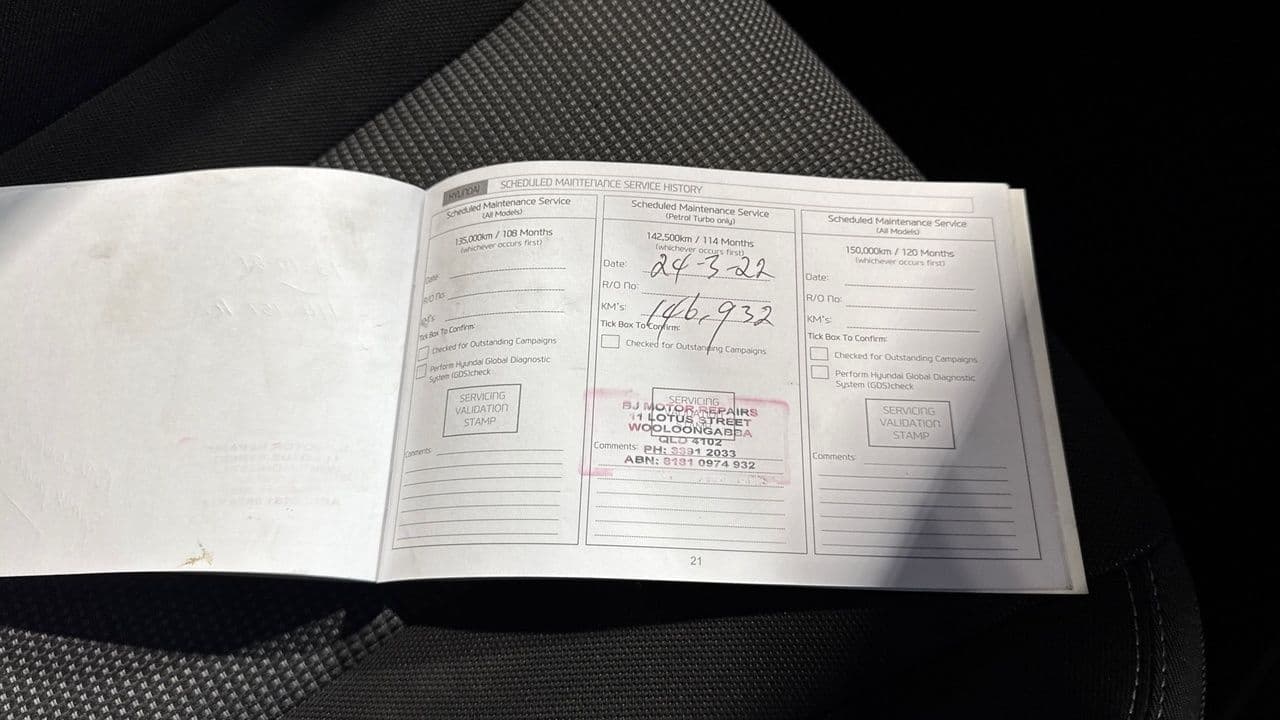 HYUNDAI
SCHEDULED MAINTENANCE SERVICE HISTORY
Scheduled Maintenance Service
(All Models)
135,000km / 108 Months
(whichever occurs first)
Date:
R/O No:
KM's:
Tick Box To Confirm:
Checked for Outstanding Campaigns
Perform Hyundai Global Diagnostic
System (GDS)check
SERVICING
VALIDATION
STAMP
Comments:
Scheduled Maintenance Service
(Petrol Turbo only)
142,500km / 114 Months
(whichever occurs first)
Date: 24-3-22
R/O No:
KM's: 146,932
Tick Box To Confirm:
Checked for Outstanding Campaigns
SERVICING
BJ MOTOR REPAIRS
11 LOTUS STREET
WOOLOONGABBA
QLD 4102
Comments: PH: 3391 2033
ABN: 8181 0974 932
Scheduled Maintenance Service
(All Models)
150,000km / 120 Months
(whichever occurs first)
Date:
R/O No:
KM's:
Tick Box To Confirm:
Checked for Outstanding Campaigns
Perform Hyundai Global Diagnostic
System (GDS)check
SERVICING
VALIDATION
STAMP
Comments:
21